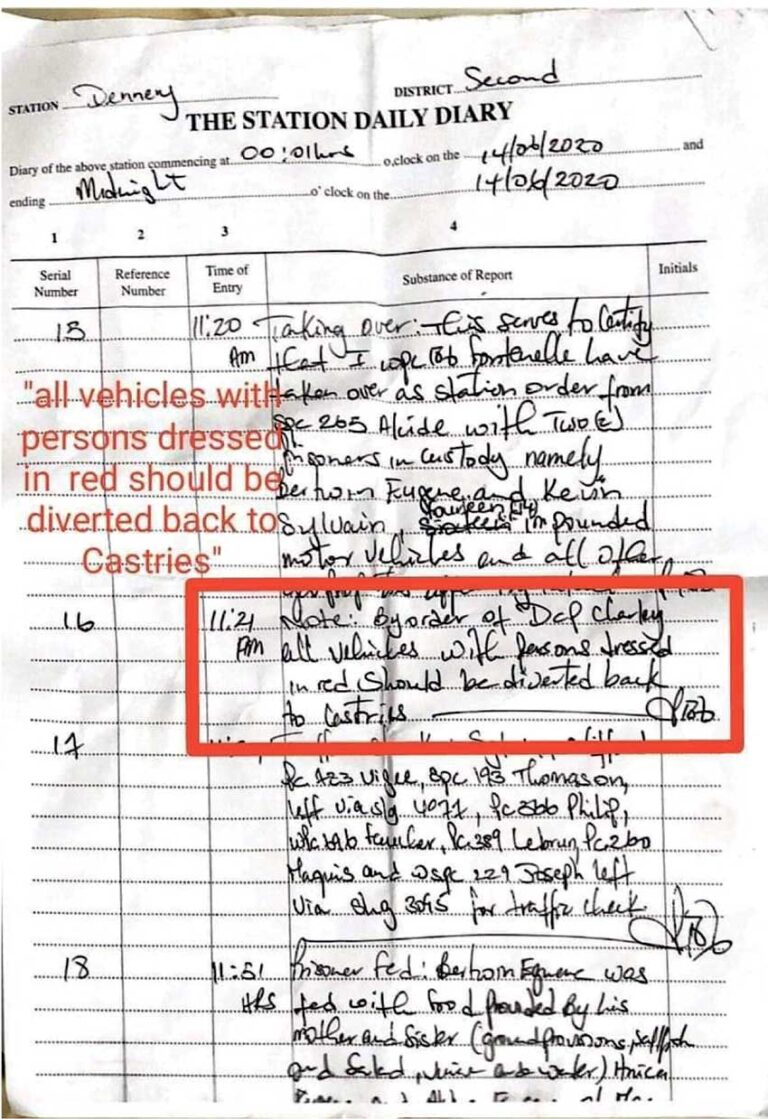 STATION Dennery DISTRICT Second
THE STATION DAILY DIARY
Diary of the above station commencing at 00:01hrs o,clock on the 14/06/2020 and
ending Midnight o' clock on the 14/06/2020
1 2 3 4
Serial Number Reference Number Time of Entry Substance of Report Initials
15 11:20 Am Taking over: This serves to Certify
that I wpc fontenelle have
taken over as station order from
265 Alcide with Two (2)
Prisoners in custody namely
Berhom Eugene and Kevin
Sylvain, fourteen (14) impounded
motor vehicles and all other
"all vehicles with
persons dressed
in red should be
diverted back to
Castries"
16 11:21 Am Note: By order of Dcp Charley
all vehicles with persons dressed
in red should be diverted back
to Castries
17
Pc 423 Vigee, Spc 193 Thomason,
left via slg 4071, Pc 366 Philip,
Pc.389 Lebrun, Pc260
Maquis and wspc 229 Joseph left
via slg 3095 for traffic check
18 11:51 HRS Prisoner Fed: Berhom Eugene was
fed with food provided by his
mother and sister (ground provisions, saltfish
and salad, Juice and water)